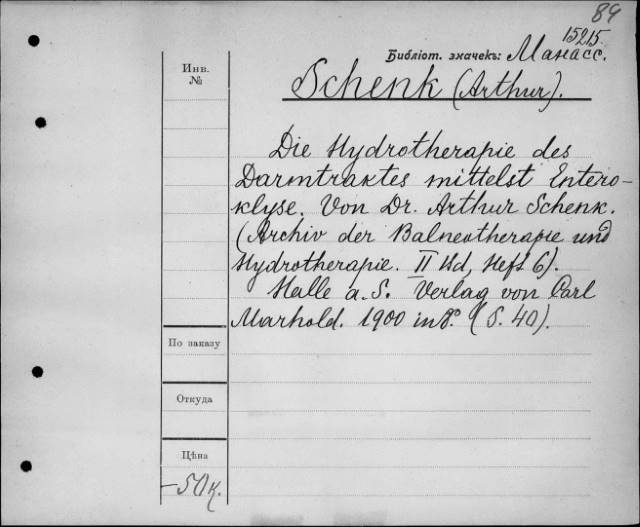 89
15215.
Библіот. значекъ: Манасс.
Инв.
№
Schenk (Arthur).
Die Hydrotherapie des
Darmtraktes mittelst Entero-
klyse. Von Dr. Arthur Schenk.
(Archiv der Balneotherapie und
Hydrotherapie. II Bd, Heft 6).
Halle a. S. Verlag von Carl
Marhold. 1900 in 8.° (S. 40).
По заказу
Откуда
Цѣна
— 50 к.